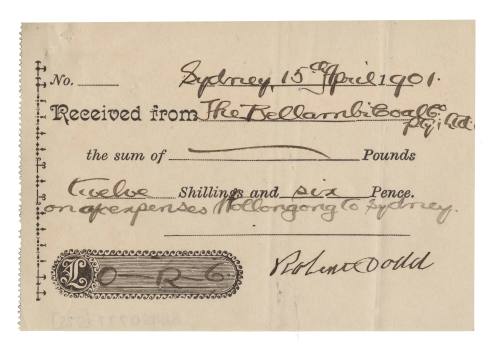 No. Sydney, 15th April 1901.
Received from The Bellambi Coal Co. Pty. Ltd.
the sum of Pounds
twelve Shillings and six Pence.
expenses Wollongong to Sydney.
£ 0
Robert Dodd